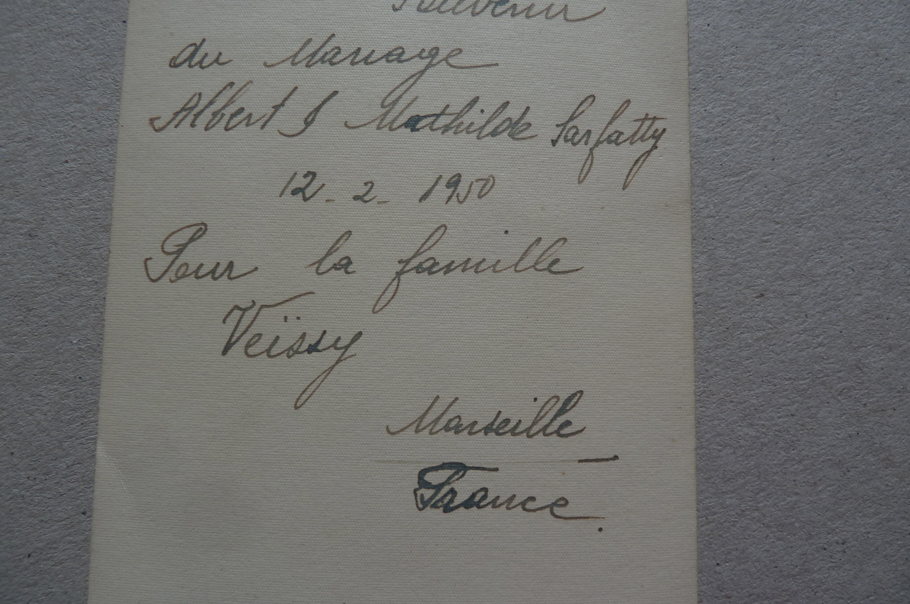 Souvenir
du Mariage
Albert & Mathilde Sarfatty
12-2-1950
Pour la famille
Veïssy
Marseille
France.